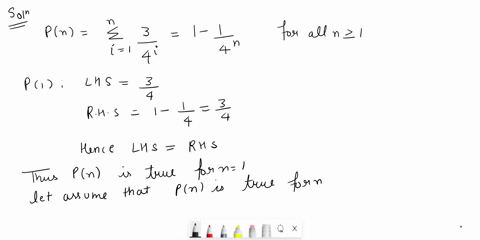 Soln
P(n) = ∑_{i=1}^{n} 3/4^i = 1 - 1/4^n for all n ≥ 1
P(1): LHS = 3/4
R.H.S = 1 - 1/4 = 3/4
Hence LHS = RHS
Thus P(n) is true for n=1
let assume that P(n) is true for n